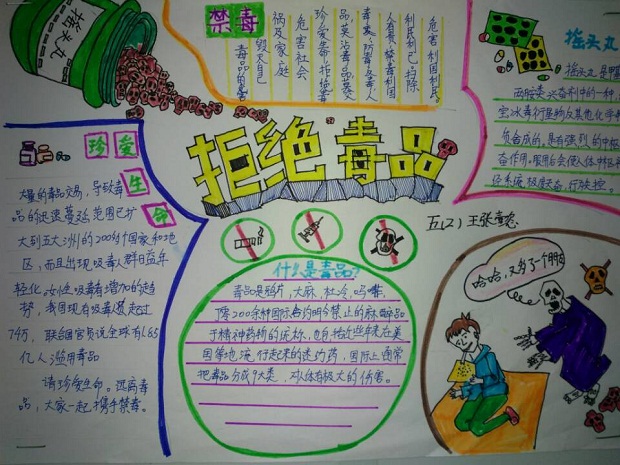 摇头丸
禁毒
危害利国利民。
利民利己扫除
人有责,禁毒利国
毒素,防毒反毒人
品,莫沾毒品,英人
珍爱生命,拒绝毒
危害社会
祸及家庭
毁灭自己
拒绝毒品
摇头丸
摇头丸是甲
丙胺类兴奋剂中的一种,
负合成的,具有强烈的中枢
奋作用,服用后会使人体中枢神
经系统极度亢奋,行动失控。
五(2)王张
珍爱
生
命
大量的毒品交易,导致毒
品的迅速蔓延,范围已扩
大到五大洲的200多个国家和地
区,而且出现吸毒人群日益年
轻化,女性吸毒者增加的趋
势,我国现有吸毒人员超过
74万,联合国官员说全球有1.65
亿人滥用毒品
请珍爱生命。远离毒
品,大家一起携手禁毒。
什么是毒品?
毒品是鸦片,大麻,杜冷,吗啡,
等200余种国际条约明令禁止的麻醉品
于精神药物的统称,也包括近些年来在美
国等地流行起来的迷幻药,国际上通常
把毒品分成9大类,对人体有极大的伤害。
哈哈,又多了一个朋友